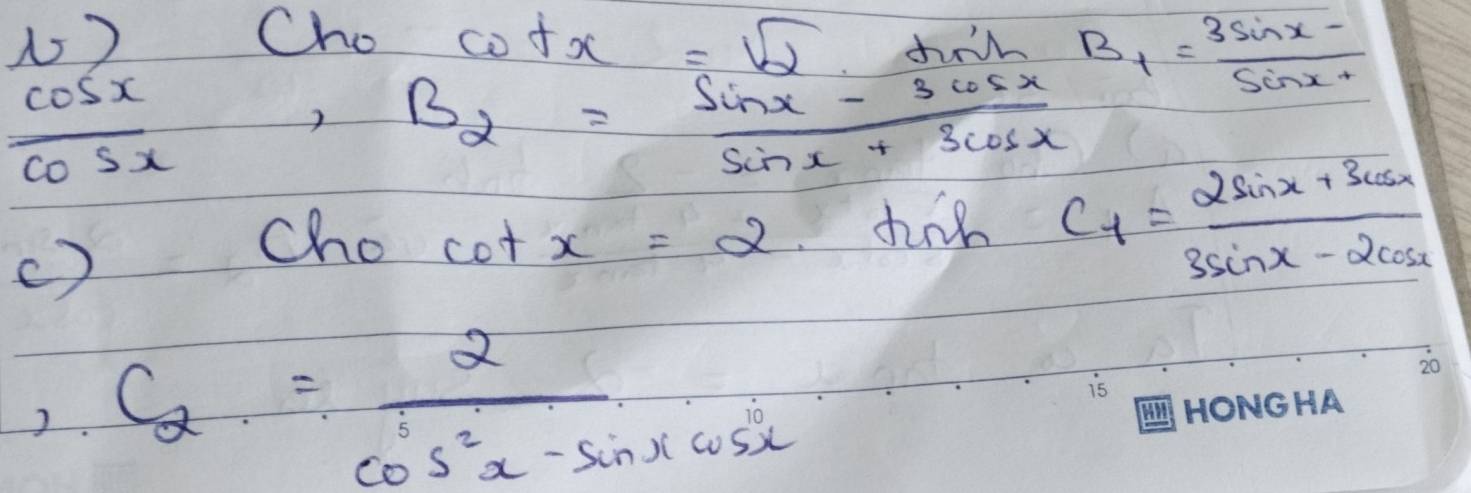 b) Cho cotx = √2. tính B₁ = (3sinx -)/(sinx +)
cosx/cosx , B₂ = (sinx - 3cosx)/(sinx + 3cosx)
c) Cho cotx = 2. tính C₁ = (2sinx + 3cosx)/(3sinx - 2cosx)
, C₂ = 2/(cos²x - sinx cosx)
5 10 15 20
HH HONG HA